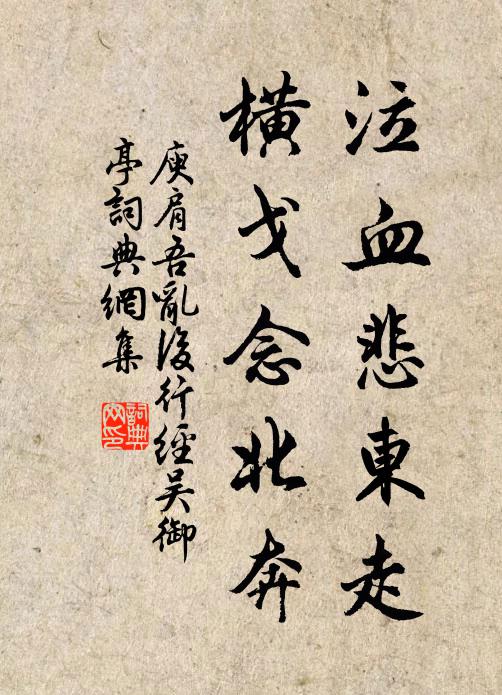 泣血悲東走
橫戈念北奔
庾肩吾亂後行經吳御
亭詞典網集
詞典
网印